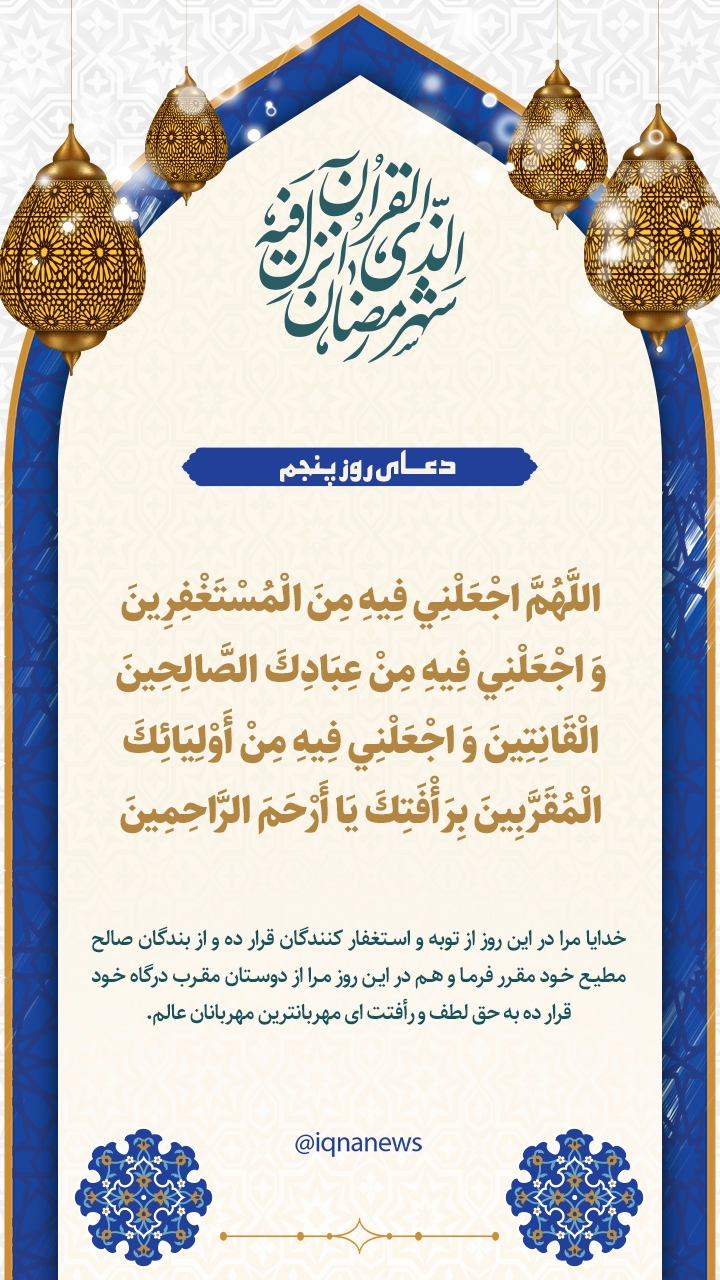 شهر رمضان الّذی اُنزل فیه القرُآن
دعـای روز پنجم
اللَّهُمَّ اجْعَلْنِي فِيهِ مِنَ الْمُسْتَغْفِرِينَ
وَ اجْعَلْنِي فِيهِ مِنْ عِبَادِكَ الصَّالِحِينَ
الْقَانِتِينَ وَ اجْعَلْنِي فِيهِ مِنْ أَوْلِيَائِكَ
الْمُقَرَّبِينَ بِرَأْفَتِكَ يَا أَرْحَمَ الرَّاحِمِينَ
خدایا مرا در این روز از توبه و استغفار کنندگان قرار ده و از بندگان صالح
مطیع خود مقرر فرما و هم در این روز مرا از دوستان مقرب درگاه خود
قرار ده به حق لطف و رأفتت ای مهربانترین مهربانان عالم.
@iqnanews